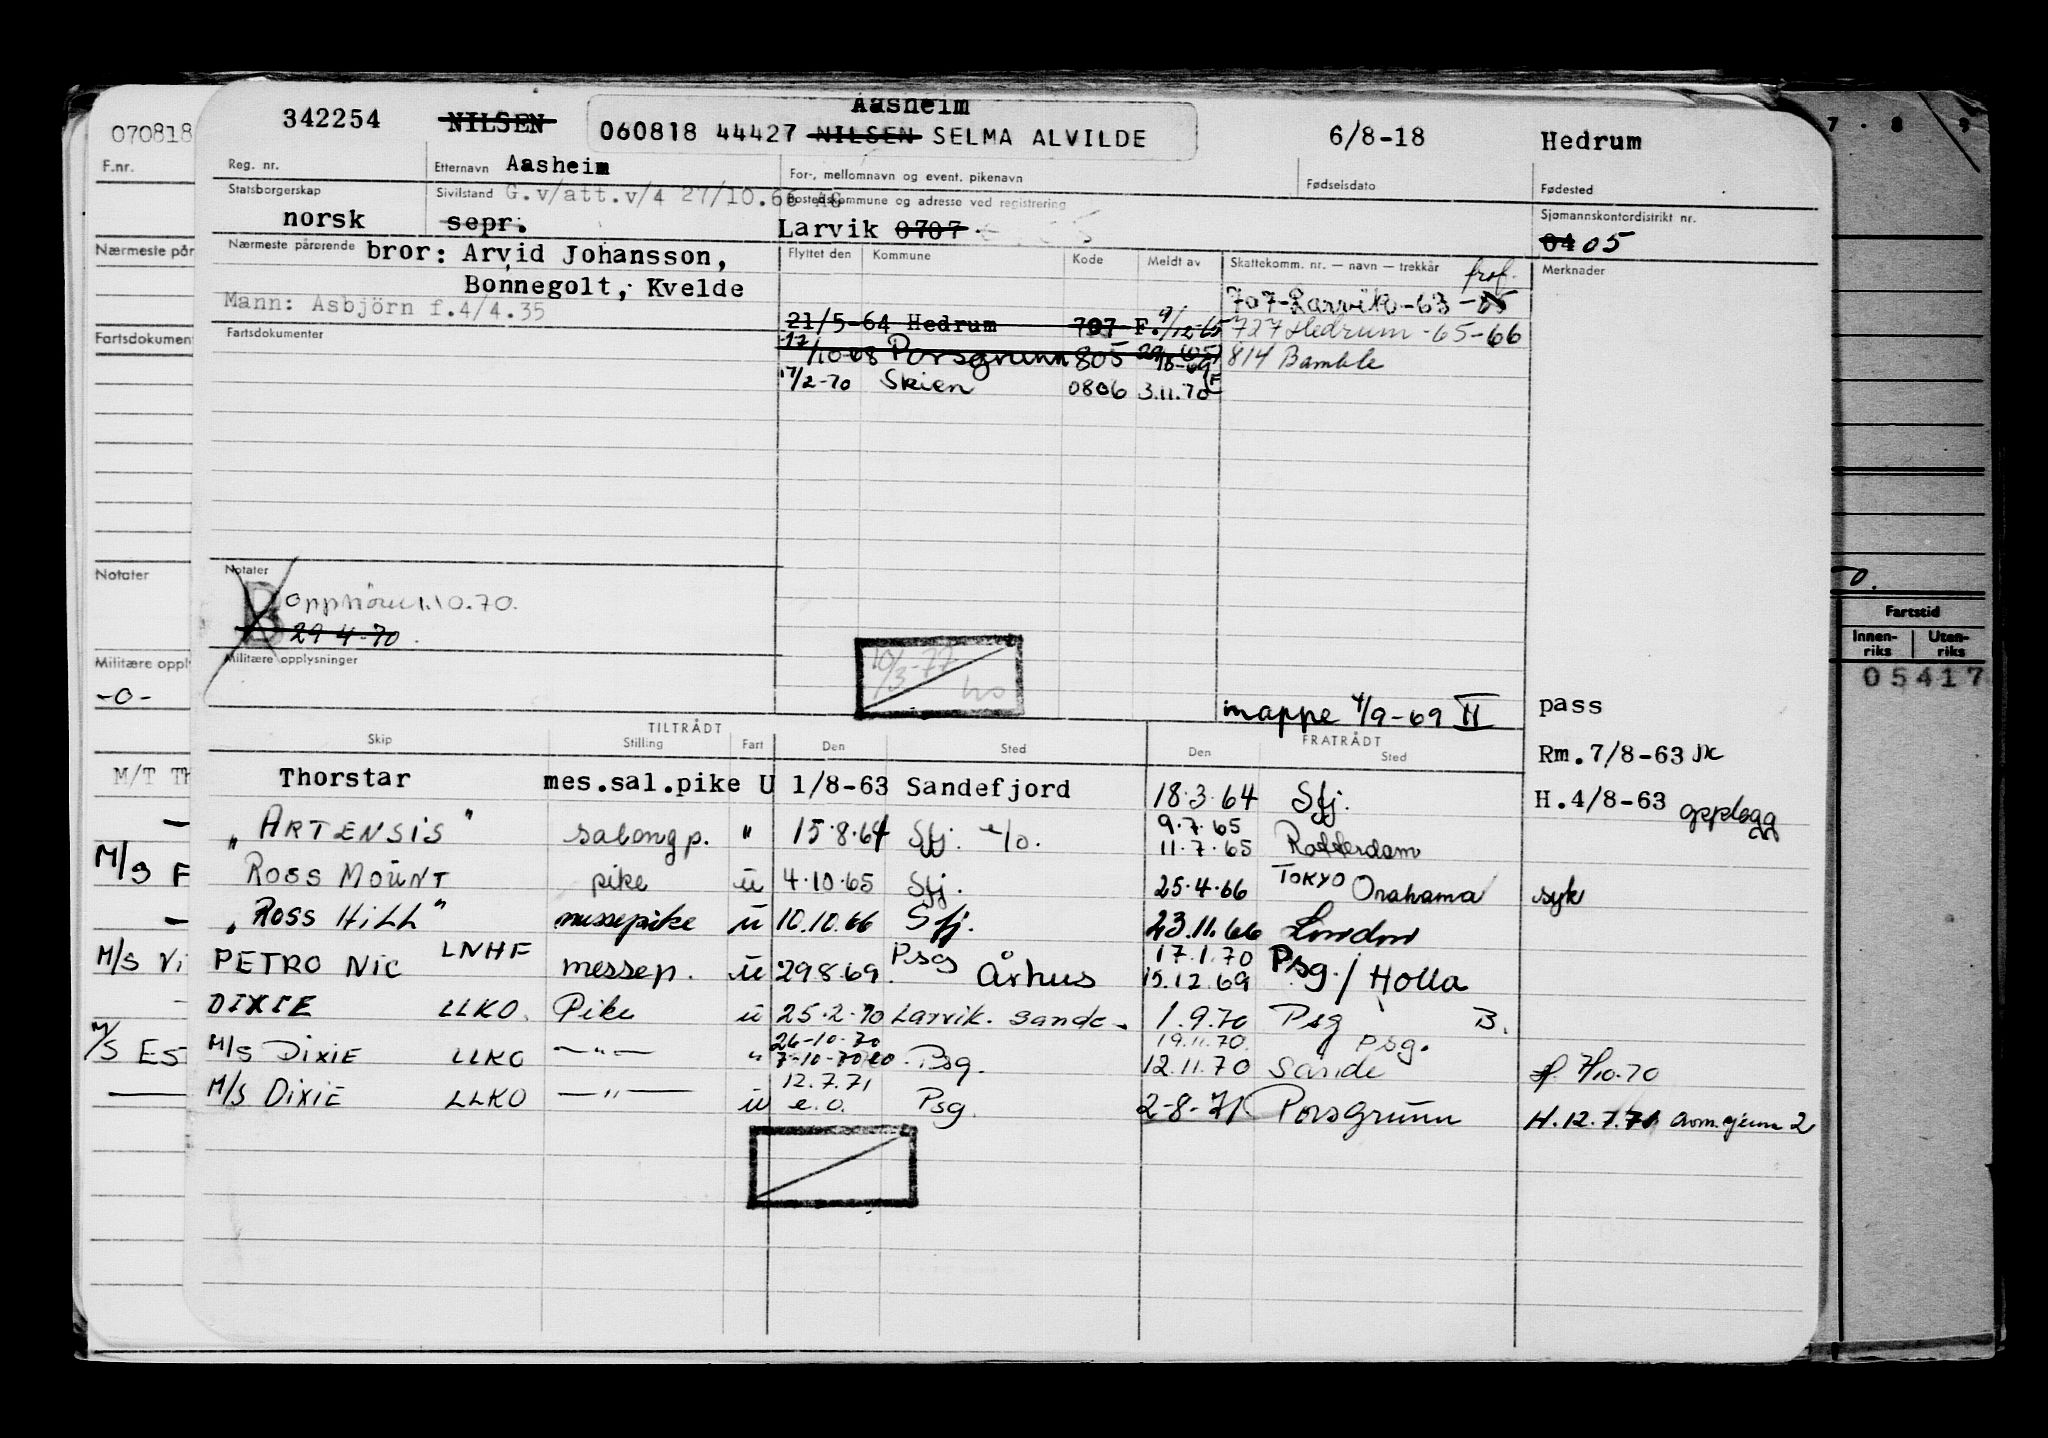 342254 NILSEN 060818 44427 Aasheim NILSEN SELMA ALVILDE 6/8-18 Hedrum
Reg. nr. Etternavn Aasheim For-, mellomnavn og event. pikenavn Fødselsdato Fødested
Statsborgerskap Sivilstand G.v/att.v/4 27/10.66 AG Bostedskommune og adresse ved registrering Sjømannskontordistrikt nr.
norsk sepr. Larvik 0707 04 05
Nærmeste pårørende bror: Arvid Johansson, Flyttet den Kommune Kode Meldt av Skattekomm. nr. — navn — trekkår Merknader
Bonnegolt, Kvelde 707-Larvik-63-
Mann: Asbjörn f.4/4.35 21/5-64 Hedrum 707 F. 9/12-65 727 Hedrum-65-66
Fartsdokumenter 17/10-68 Porsgrunn 805 814 Bamble
17/2-70 Skien 0806 3.11.70
Notater
Opphörer 1.10.70.
29-4-70.
Militære opplysninger
10/3-77
mappe 4/9-69 II pass
TILTRÅDT FRATRÅDT
Skip Stilling Fart Den Sted Den Sted
Rm.7/8-63
Thorstar mes.sal.pike U 1/8-63 Sandefjord 18.3.64 Sfj. H.4/8-63 opplegg
"ARTENSIS" salongp. " 15.8.64 Sfj. 9.7.65
11.7.65 Rotterdam
ROSS MOUNT pike u 4.10.65 Sfj. 25.4.66 TOKYO Onahama syk
"ROSS HILL" messepike u 10.10.66 Sfj. 23.11.66 London
PETRO NIC LNHF messep. u 29.8.69. Psg Århus 17.1.70
15.12.69 Psg./Holla
DIXIE LLKO. Pike u 25.2.70 Larvik. Sande. 1.9.70 Psg B.
M/S DIXIE LLKO —"— " 26-10-70
7-10-70 Psg. 19.11.70. Psg.
12.11.70 Sande 7/10.70
M/S DIXIE LLKO —"— u 12.7.71
e.o. Psg. 2-8-71 Porsgrunn H.12.7.71
070818
F.nr.
Nærmeste pår
Fartsdokument
Notater
Militære oppl
-0-
M/T Th
M/S F
M/S Vi
M/S ES
7 . 8 9
Fartstid
Innen-
riks Uten-
riks
05417